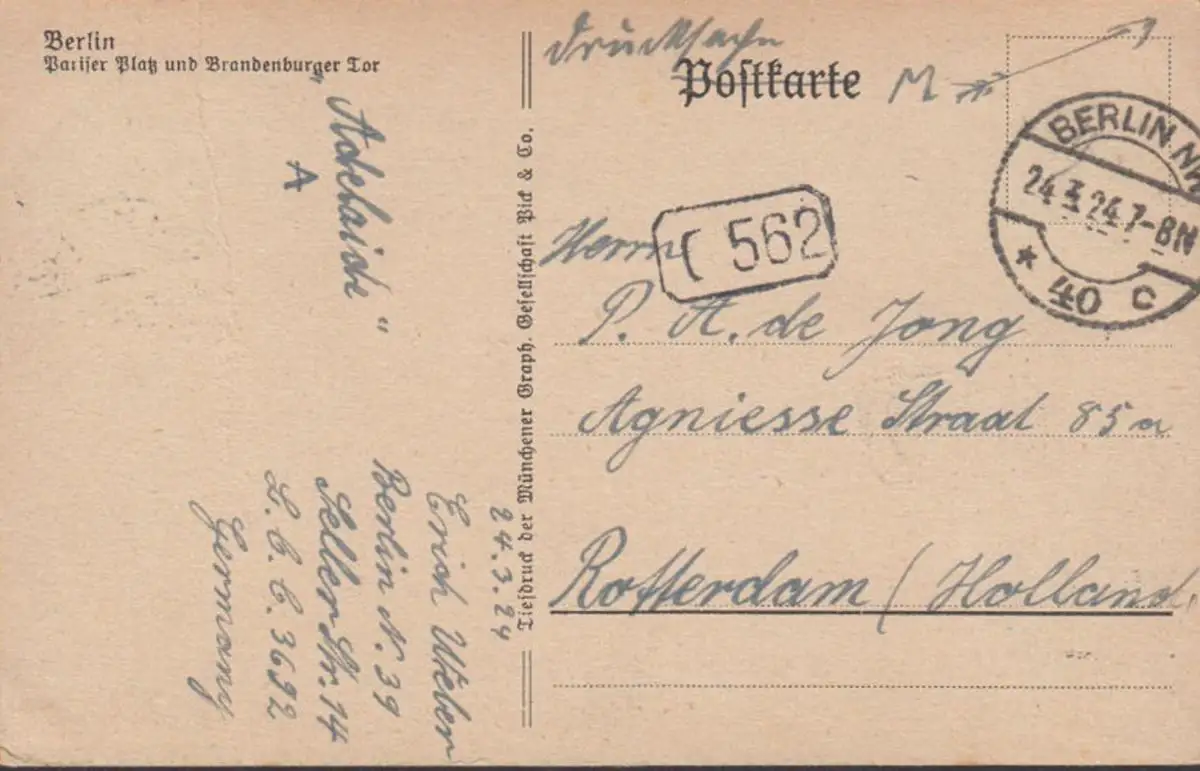 Berlin
Pariser Platz und Brandenburger Tor
"Adelaide"
A
24.3.24
Erich Weber
Berlin N. 39
Sellerstr. 14
L. C. C. 3692
Germany
Tiefdruck der Münchener Graph. Gesellschaft Pick & Co.
Drucksache
Postkarte
M
BERLIN NW
24.3.24.7-8N
* 40 c
562
Herrn
P. A. de Jong
Agniesse Straat 85a
Rotterdam (Holland)